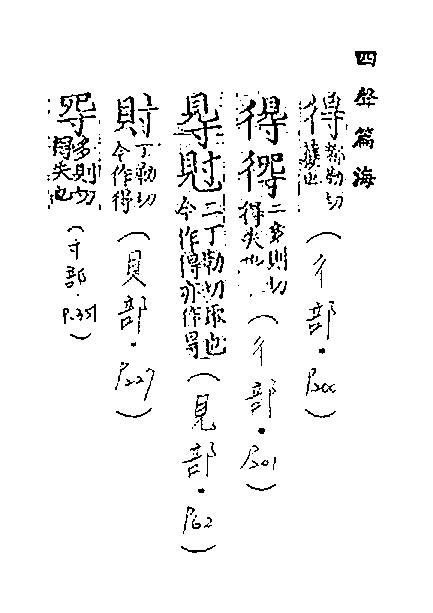 四聲篇海
得 都勒切獲也(彳部.P.200)
二多則切得失也(彳部.P.201)
二丁勒切取也今作得亦作㝵(見部.P.62)
丁勒切今作得(貝部.P.227)
多則切得失也(寸部.P.351)